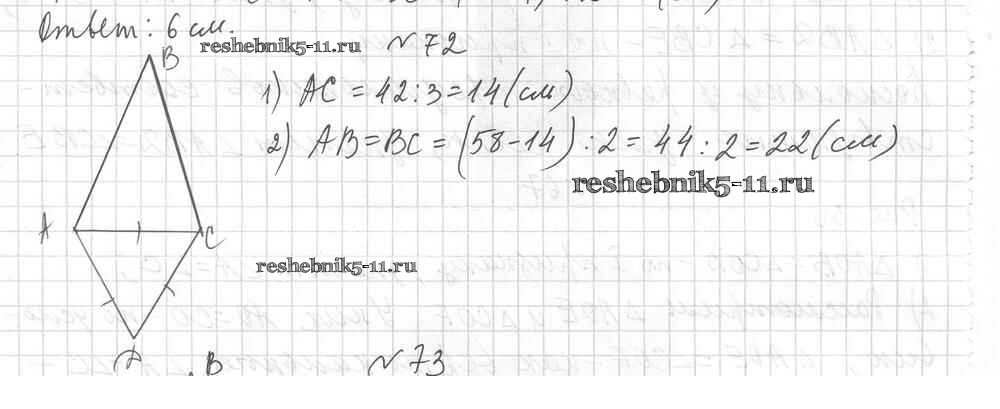 Ответ: 6 см.
reshebnik5-11.ru
№72
B
1) AC = 42:3=14(см)
2) AB=BC=(58-14):2=44:2=22(см)
reshebnik5-11.ru
A
C
reshebnik5-11.ru
B
№73